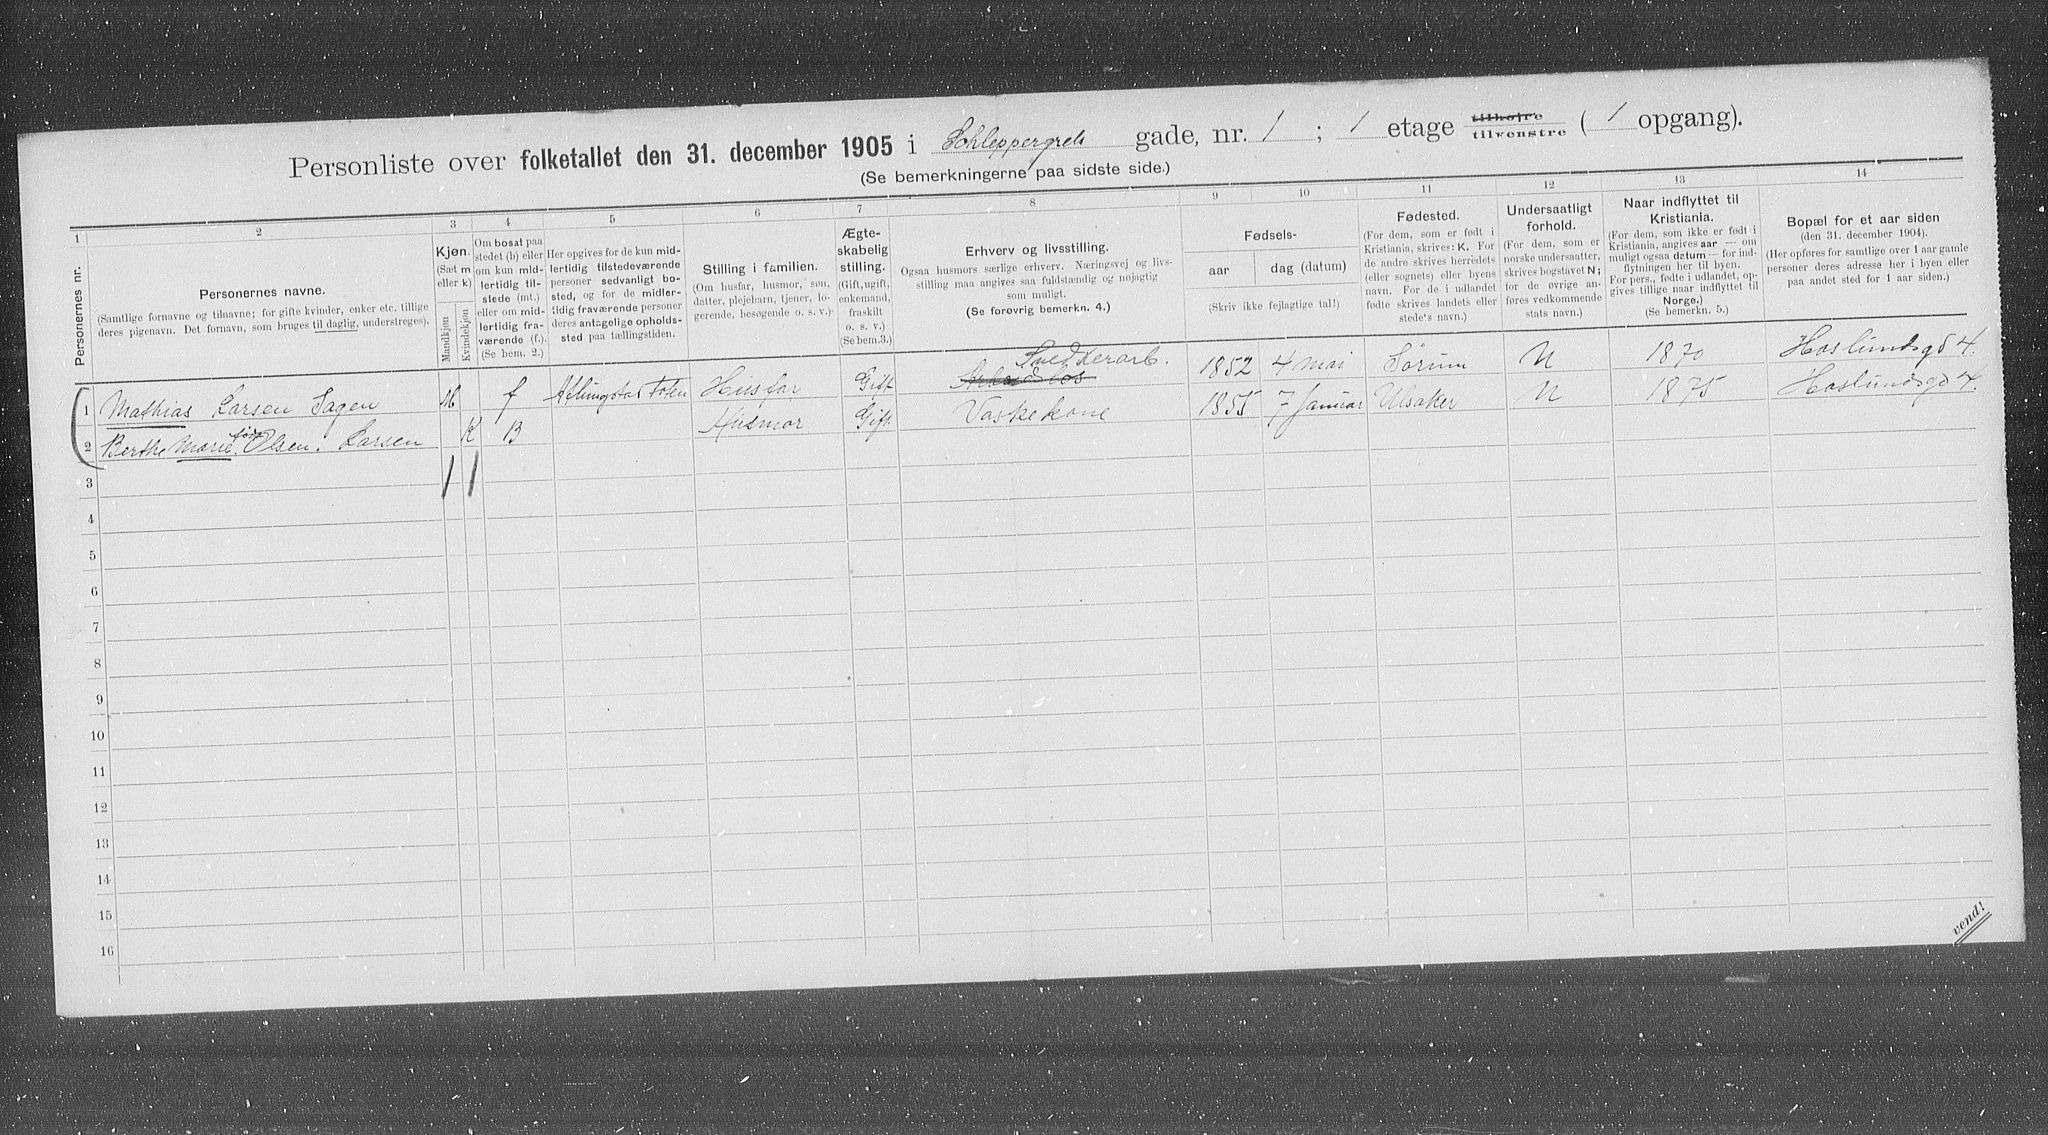 Personliste over folketallet den 31. december 1905 i Schleppergrels gade, nr. 1 ; 1 etage tilhøire tilvenstre ( 1 opgang).
(Se bemerkningerne paa sidste side.)
1 2 3 4 5 6 7 8 9 10 11 12 13 14
Personernes nr.
Personernes navne.
(Samtlige fornavne og tilnavne; for gifte kvinder, enker etc. tillige
deres pigenavn. Det fornavn, som bruges til daglig, understreges).
Kjøn.
(Sæt m
eller k)
Mandkjøn
Kvindekjøn
Om bosat paa
stedet (b) eller
om kun mid-
lertidig til-
stede (mt.)
eller om mid-
lertidig fra-
værende (f.).
(Se bem. 2.)
Her opgives for de kun mid-
lertidig tilstedeværende
personer sedvanligt bo-
sted, og for de midler-
tidig fraværende personer
deres antagelige opholds-
sted paa tællingstiden.
Stilling i familien.
(Om husfar, husmor, søn,
datter, plejebarn, tjener, lo-
gerende, besøgende o. s. v.)
Ægte-
skabelig
stilling.
(Gift, ugift,
enkemand,
fraskilt
o. s. v.)
(Se bem.3.)
Erhverv og livsstilling.
Ogsaa husmors særlige erhverv. Næringsvej og livs-
stilling maa angives saa fuldstændig og nøjagtig
som muligt.
(Se forøvrig bemerkn. 4.)
Fødsels-
aar dag (datum)
(Skriv ikke fejlagtige tal!)
Fødested.
(For dem, som er født i
Kristiania, skrives: K. For
de andre skrives herredets
(eller sognets) eller byens
navn. For de i udlandet
fødte skrives landets eller
stede's navn.)
Undersaatligt
forhold.
(For dem, som er
norske undersaatter,
skrives bogstavet N;
for de øvrige an-
føres vedkommende
stats navn.)
Naar indflyttet til
Kristiania.
(For dem, som ikke er født i
Kristiania, angives aar — om
muligt ogsaa datum — for ind-
flytningen her til byen.
For pers., fødte i udlandet, op-
gives tillige naar indflyttet til
Norge,)
(Se bemerkn. 5.)
Bopæl for et aar siden
(den 31. december 1904).
(Her opføres for samtlige over 1 aar gamle
personer deres adresse her i byen eller
paa andet sted for 1 aar siden.)
Snedkerarb.
1 Mathias Larsen Sagen M f Toten Husfar Gift 1852 4 mai Sørum N 1870 Haslundsgd 4.
2 Berthe Marie født Olsen. Larsen K B Husmor Gift Vaskekone 1855 7 Januar Ulsaker N 1875 Haslundsgd 4.
3 1 1
4
5
6
7
8
9
10
11
12
13
14
15
16
vend!